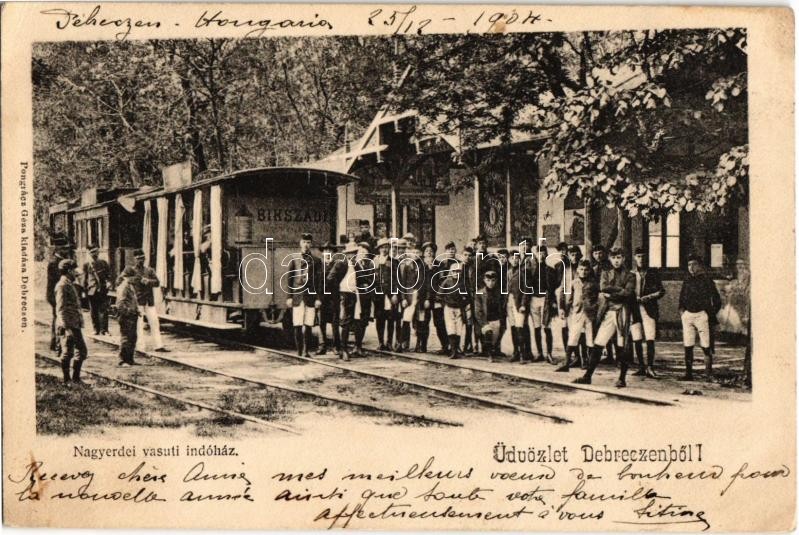 Debreczen - Hongaria 25/12 - 1904.
Pongrácz Géza kiadása Debreczen.
BIKSZÁDI
darabanth
Nagyerdei vasuti indóház.
Üdvözlet Debreczenből!
Recevez chère Annie mes meilleurs voeux de bonheur pour
la nouvelle année ainsi que toute votre famille
affectueusement à vous